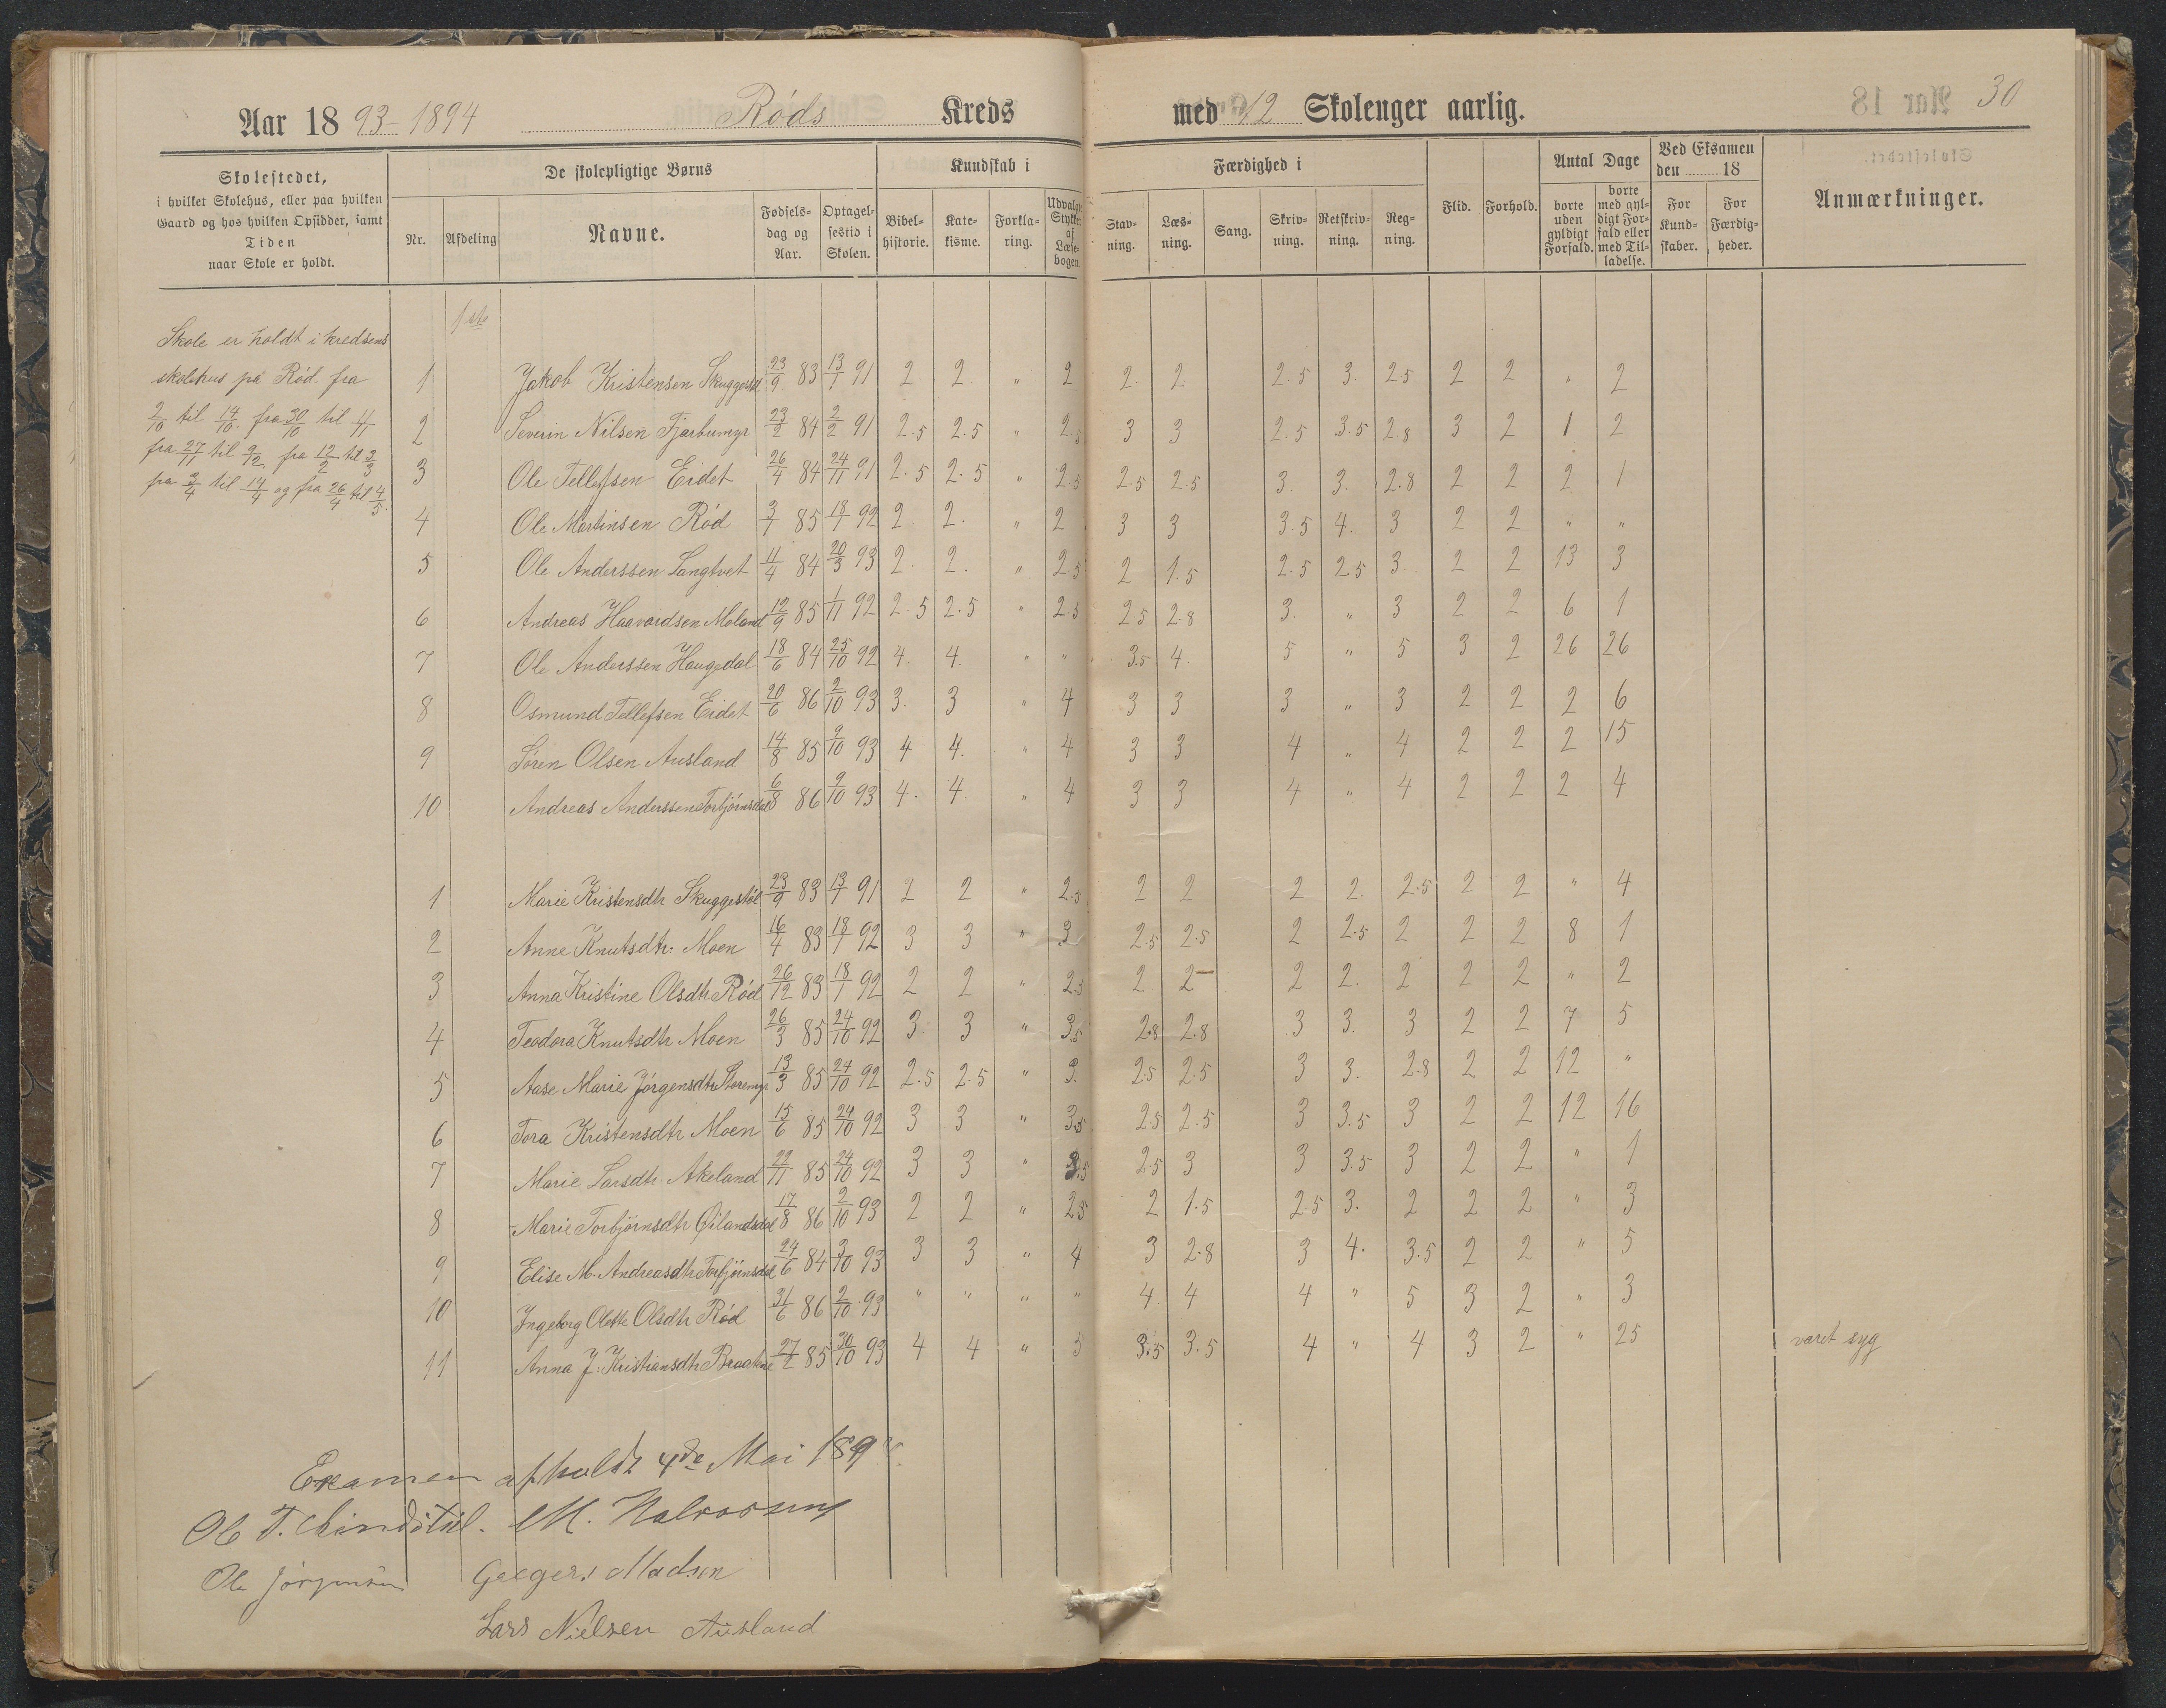 Aar 1893-1894 Röds Kreds med 12 Skolenger aarlig. 30
Skolestedet,
i hvilket Skolehus, eller paa hvilken
Gaard og hos hvilken Opsidder, samt
Tiden
naar Skole er holdt.
De skolepligtige Børns
Nr. Afdeling Navne. Fødsels-dag og Aar. Optagel-sestid i Skolen.
Kundskab i
Bibel-historie. Kate-kisme. Forkla-ring. Udvalgte Stykker af Læse-bogen.
Færdighed i
Stav-ning. Læs-ning. Sang. Skriv-ning. Retskriv-ning. Reg-ning.
Flid. Forhold.
Antal Dage
borte uden gyldigt Forfald. borte med gyl-digt For-fald eller med Til-ladelse.
Ved Eksamen den 18
For Kund-skaber. For Færdig-heder.
Anmærkninger.
1ste
Skole er holdt i kredsens
skolehus på Röd fra
2/10 til 14/10. fra 30/10 til 11/11
fra 27/11 til 9/12 fra 12/2 til 3/3
fra 2/4 til 14/4 og fra 26/4 til 4/5.
1 Jakob Kristensen Skuggestöl 23/9 83 13/1 91 2. 2. " 2 2. 2 2.5 3. 2.5 2 2 " 2
2 Severin Nilsen Fjarbumyr 23/2 84 2/2 91 2.5 2.5 " 2.5 3 3 2.5 3.5 2.8 3 2 1 2
3 Ole Tellefsen Eidet 26/4 84 24/11 91 2.5 2.5 " 2.5 2.5 2.5 3. 3. 2.8 2 2 2 1
4 Ole Martinsen Röd 3/1 85 18/1 92 2 2. " 2 3 3 3.5 4. 3 2 2 " "
5 Ole Anderssen Langtvet 11/4 84 20/3 93 2. 2. " 2.5 2 1.5 2.5 2.5 3. 2 2 13 3
6 Andreas Haavardsen Moland 12/9 85 1/11 92 2.5 2.5 " 2.5 2.5 2.8 3. " 3 2 2 6 1
7 Ole Anderssen Haugedal 18/6 84 25/10 92 4. 4. " " 3.5 4 5 " 5 3 2 26 26
8 Osmund Tellefsen Eidet 20/6 86 2/10 93 3. 3 " 4 3 3 3 " 3 2 2 2 6
9 Sören Olsen Ausland 14/8 85 9/10 93 4 4. " 4 3 3 4 " 4 2 2 2 15
10 Andreas Anderssen Torbjörnsdal 6/8 86 9/10 93 4. 4. " 4 3 3 4 " 4 2 2 2 4
1 Marie Kristensdtr Skuggestöl 23/9 83 13/1 91 2 2 " 2.5 2 2 2 2. 2.5 2 2 " 4
2 Anne Knutsdtr. Moen 16/4 83 18/1 92 3 3 " 3 2.5 2.5 2 2.5 2 2 2 8 1
3 Anna Kristine Olsdtr Röd 26/12 83 18/1 92 2 2 " 2.5 2 2 2 2. 2 2 2 " 2
4 Teodora Knutsdtr Moen 26/3 85 24/10 92 3 3 " 3.5 2.8 2.8 3 3. 3 2 2 7 5
5 Aase Marie Jörgensdtr Storemyr 13/3 85 24/10 92 2.5 2.5 " 3. 2.5 2.5 3 3. 2.8 2 2 12 "
6 Tora Kristensdtr Moen 15/6 85 24/10 92 3 3 " 3.5 2.5 2.5 3 3.5 3 2 2 12 16
7 Marie Larsdtr. Akeland 22/11 85 24/10 92 3 3 " 3.5 2.5 3 3 3.5 3 2 2 " 1
8 Marie Torbjörnsdtr Öilandsdal 17/8 86 2/10 93 2 2 " 2.5 2 1.5 2.5 3. 2 2 2 " 3
9 Elise M. Andreasdtr Torbjörnsdal 24/6 84 3/10 93 3 3 " 4 3 2.8 3 4. 3.5 2 2 " 5
10 Ingeborg Olette Olsdtr Röd 31/6 86 2/10 93 " " " " 4 4 4 " 5 3 2 " 3
11 Anna J. Kristiansdtr Braatene 27/2 85 30/10 93 4 4 " 5 3.5 3.5 4 " 4 3 2 " 25 varet syg
Examen afholdt 4de Mai 189
Ole T. M. Halvorsen
Ole Jörgensen Geegers Madsen
Lars Nielsen Ausland